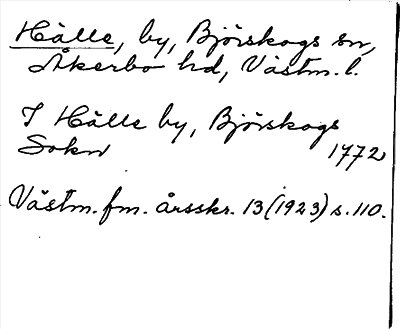 Hälle, by, Björskogs sn,
Åkerbo hd, Västm. l.
I Hälle by, Björskogs
Sokn 1772
Västm. fm. årsskr. 13 (1923) s. 110.